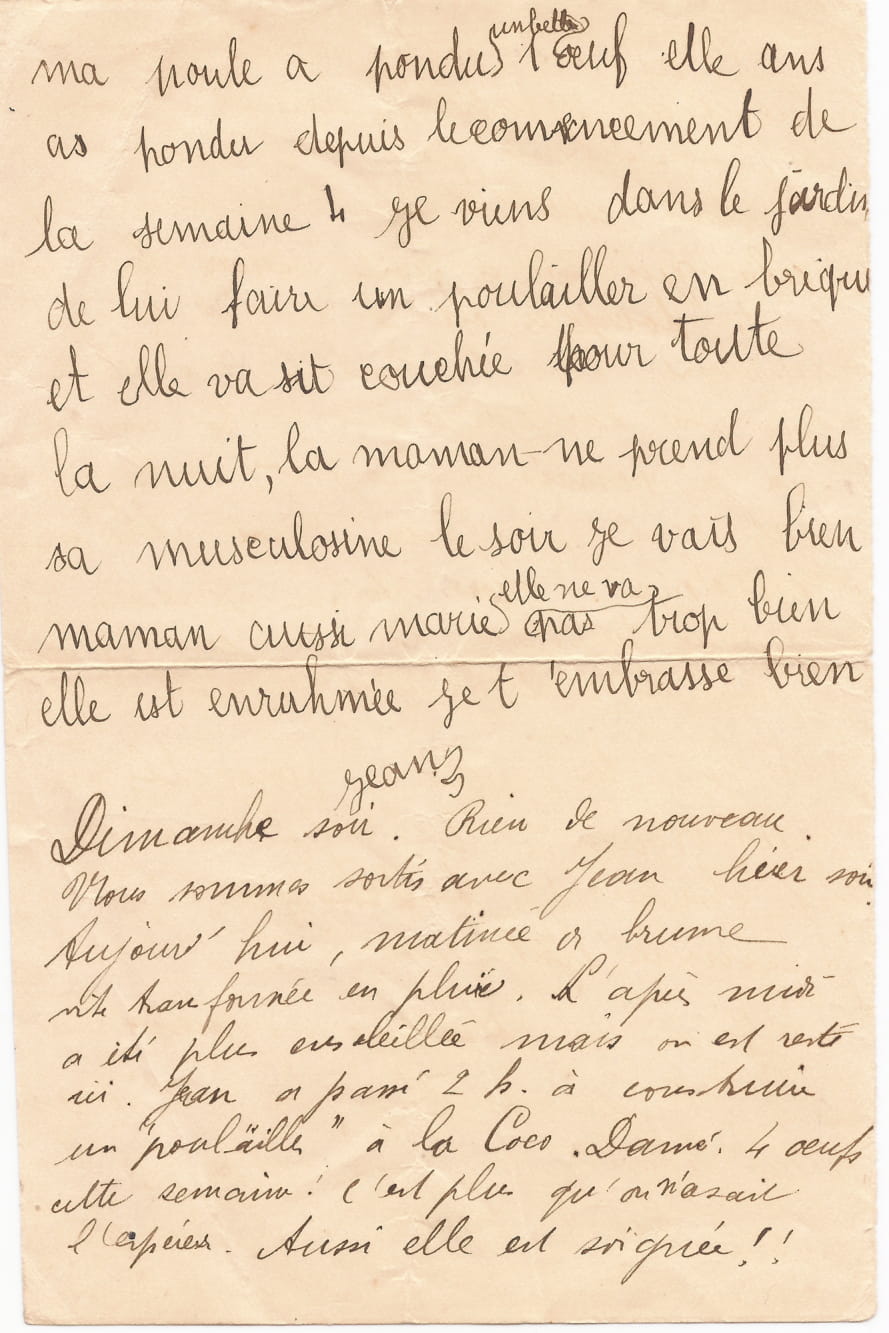 ma poule a pondu un belle l'oeuf elle ans
as pondu depuis le comencement de
la semaine 4 je viens dans le jardin
de lui faire un poulailler en brique
et elle va sit couchée pour toute
la nuit, la maman ne prend plus
sa musculosine le soir je vais bien
maman aussi marie elle ne va pas trop bien
elle est enruhmée je t'embrasse bien
jean
Dimanche soir. Rien de nouveau.
Nous sommes sortis avec Jean hier soir.
Aujourd'hui, matinée de brume
vite transformée en pluie. L'après midi
a été plus ensoleillée mais on est resté
ici. Jean a passé 2 h. à construire
un "poulailler" à la Coco. Dame. 4 oeufs
cette semaine! C'est plus qu'on n'osait
l'espérer. Aussi elle est soignée!!